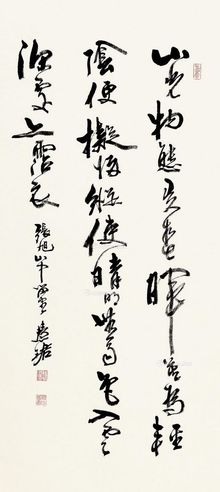 山光物態弄春暉莫為輕
陰便擬歸縱使晴明無雨色入雲
深處亦沾衣
張旭山中留客 慧珺